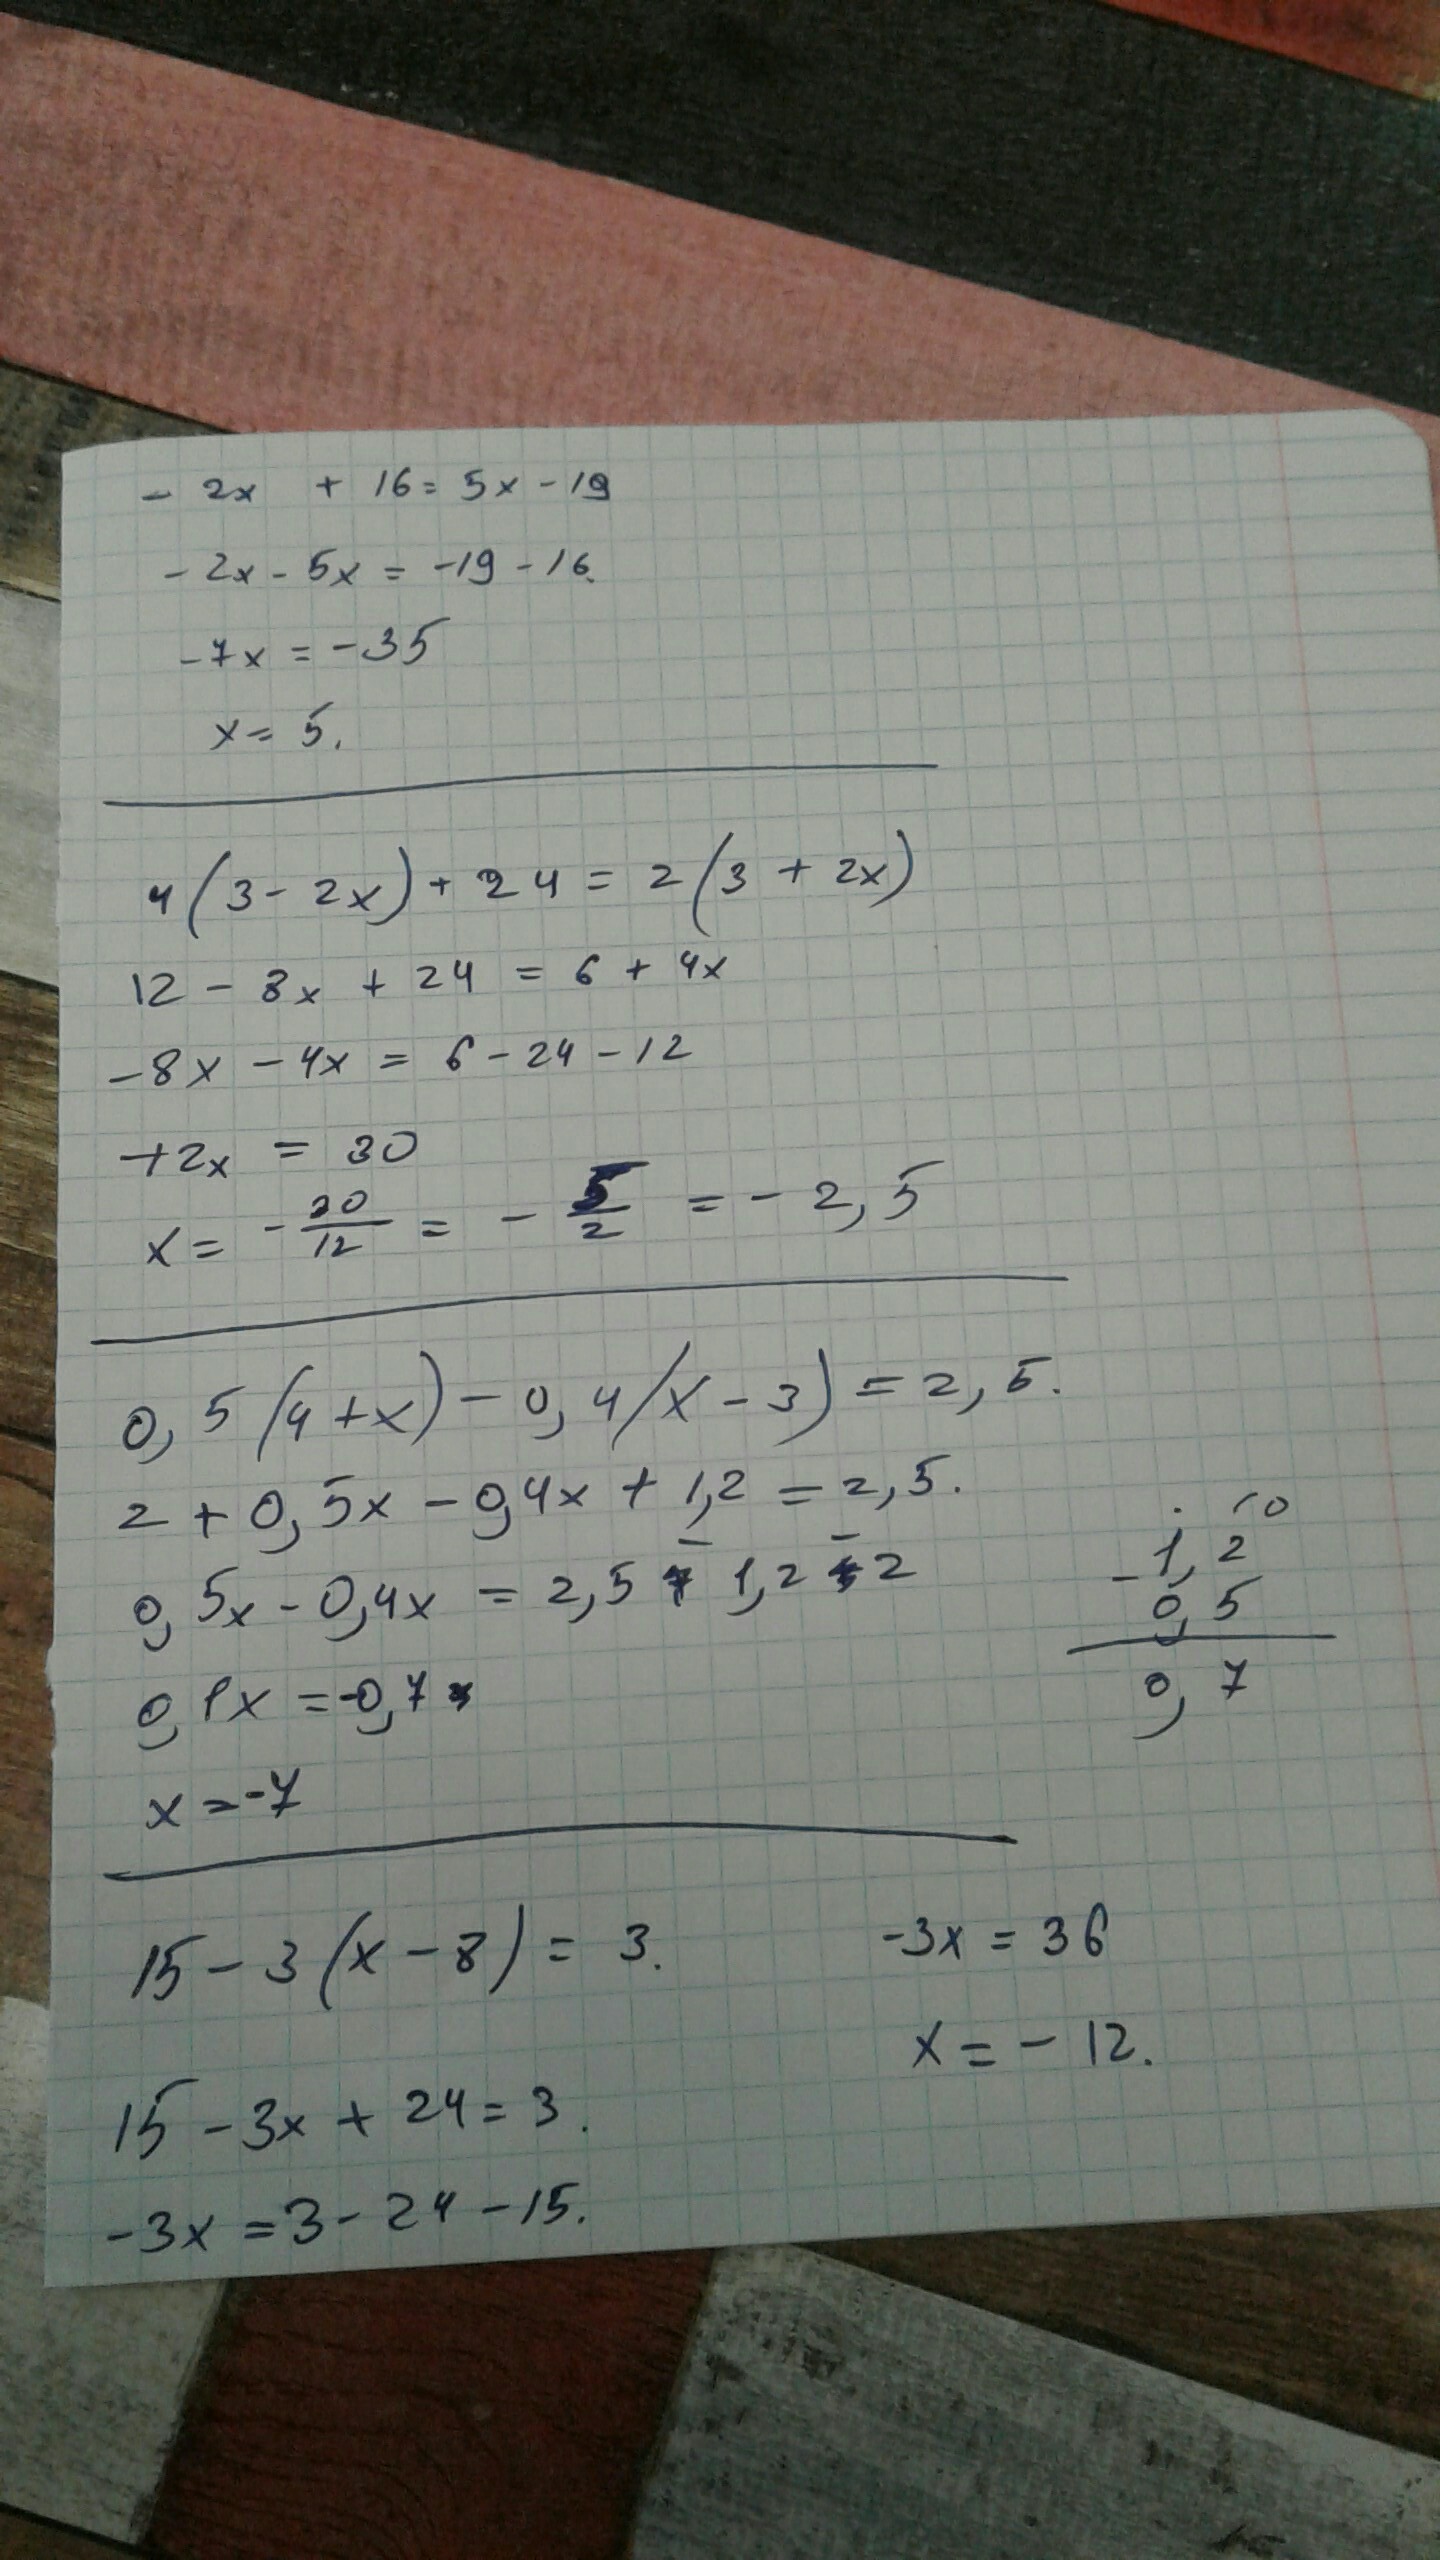 - 2x + 16 = 5x - 19
- 2x - 5x = -19 - 16.
- 7x = -35
x = 5.
4(3 - 2x) + 24 = 2(3 + 2x)
12 - 8x + 24 = 6 + 4x
-8x - 4x = 6 - 24 - 12
+2x = 30
x = - 30/12 = - 5/2 = - 2,5
0,5(4 + x) - 0,4(x - 3) = 2,5.
2 + 0,5x - 0,4x + 1,2 = 2,5.
0,5x - 0,4x = 2,5 - 1,2 - 2
0,1x = -0,7
x = -7
10
- 1,2
0,5
0,7
15 - 3(x - 8) = 3.
15 - 3x + 24 = 3.
-3x = 3 - 24 - 15.
-3x = 36
x = - 12.